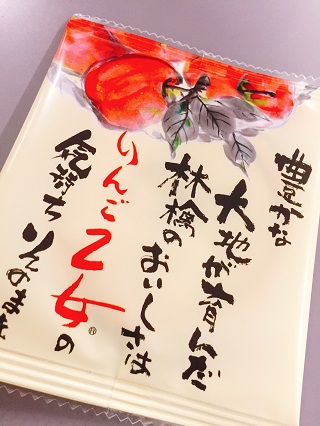 豊かな
大地が育んだ
林檎のおいしさは
りんご乙女®の
気持ちりんのまま